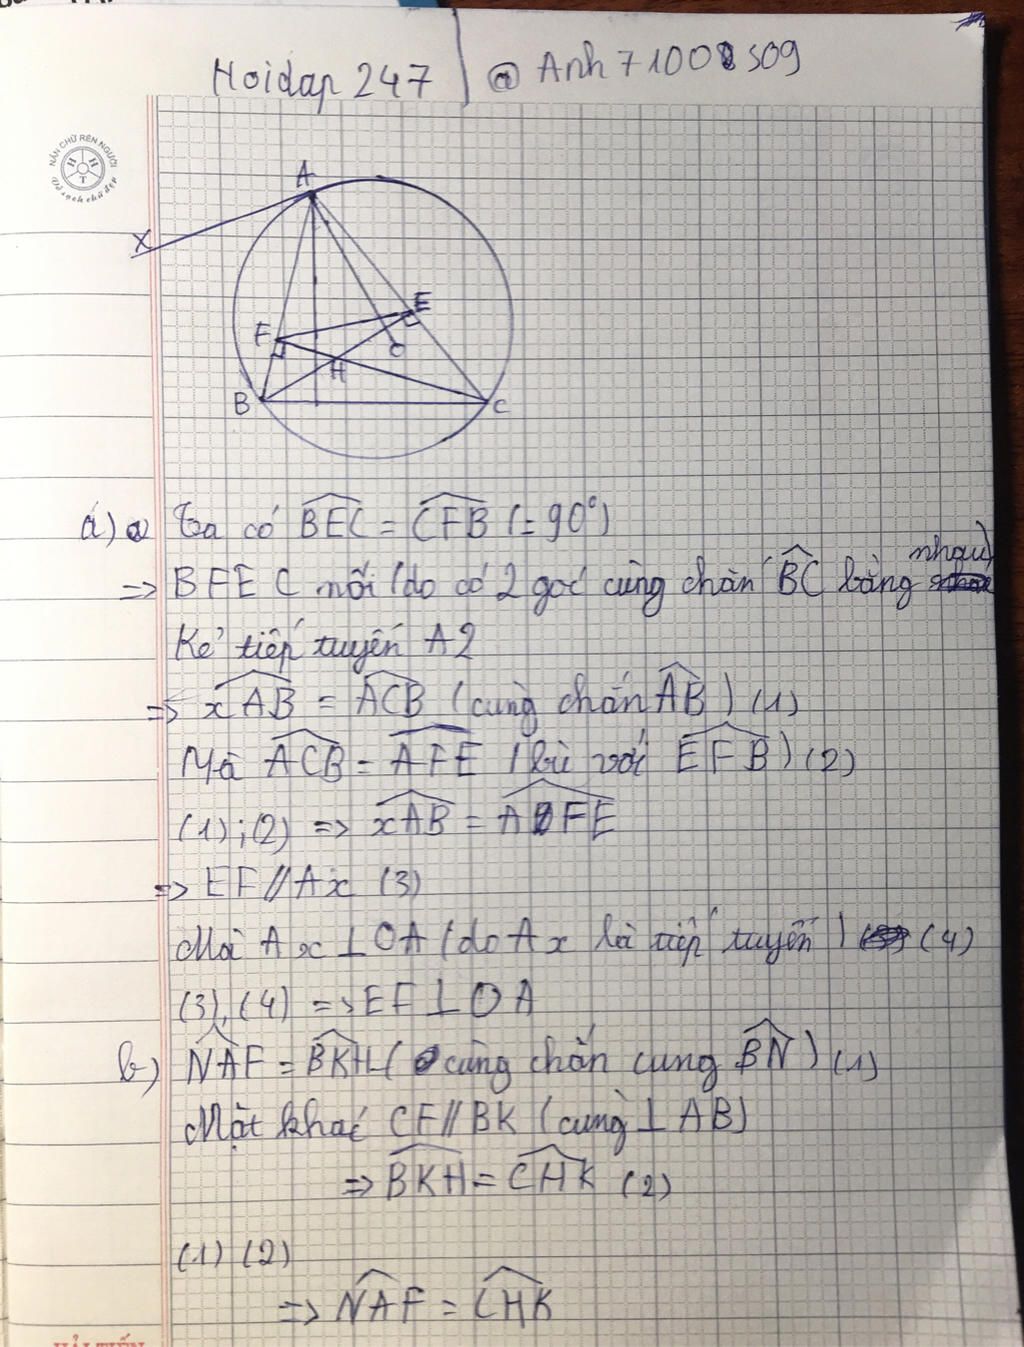 Hoidap 247 | @ Anh71008509
NẮN CHỮ RÈN NGƯỜI
H H T
Vở sạch chữ đẹp
A
x
E
F
O
H
B
C
a) Ta có BEC = CFB (= 90°)
=> BFEC nối (do có 2 góc cùng chắn BC bằng nhau)
Kẻ tiếp tuyến A2
=> xAB = ACB (cùng chắn AB) (1)
Mà ACB = AFE (bù với EFB) (2)
(1);(2) => xAB = AFE
=> EF // Ax (3)
Mà Ax ⊥ OA (do Ax là tiếp tuyến) (4)
(3),(4) => EF ⊥ OA
b) NAF = BKH (cùng chắn cung BN) (1)
Mặt khác CF // BK (cùng ⊥ AB)
=> BKH = CHK (2)
(1) (2)
=> NAF = CHK
HẢI TIẾN